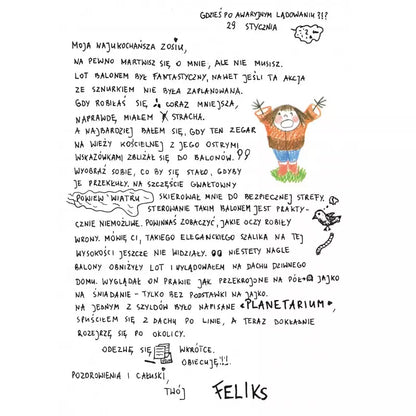 GDZIEŚ PO AWARYJNYM LĄDOWANIU ?!?
29 STYCZNIA
MOJA NAJUKOCHAŃSZA ZOSIU,
NA PEWNO MARTWISZ SIĘ O MNIE, ALE NIE MUSISZ.
LOT BALONEM BYŁ FANTASTYCZNY, NAWET JEŚLI TA AKCJA
ZE SZNURKIEM NIE BYŁA ZAPLANOWANA.
GDY ROBIŁAŚ SIĘ CORAZ MNIEJSZA,
NAPRAWDĘ MIAŁEM STRACHA.
A NAJBARDZIEJ BAŁEM SIĘ, GDY TEN ZEGAR
NA WIEŻY KOŚCIELNEJ Z JEGO OSTRYMI
WSKAZÓWKAMI ZBLIŻAŁ SIĘ DO BALONÓW.
WYOBRAŹ SOBIE, CO BY SIĘ STAŁO, GDYBY
JE PRZEKŁUŁY. NA SZCZĘŚCIE GWAŁTOWNY
POWIEW WIATRU SKIEROWAŁ MNIE DO BEZPIECZNEJ STREFY.
STEROWANIE TAKIM BALONEM JEST PRAKTY-
CZNIE NIEMOŻLIWE. POWINNAŚ ZOBACZYĆ, JAKIE OCZY ROBIŁY
WRONY. MÓWIĘ CI, TAKIEGO ELEGANCKIEGO SZALIKA NA TEJ
WYSOKOŚCI JESZCZE NIE WIDZIAŁY. NIESTETY NAGLE
BALONY OBNIŻYŁY LOT I WYLĄDOWAŁEM NA DACHU DZIWNEGO
DOMU. WYGLĄDAŁ ON PRAWIE JAK PRZEKROJONE NA PÓŁ JAJKO
NA ŚNIADANIE - TYLKO BEZ PODSTAWKI NA JAJKO.
NA JEDNYM Z SZYLDÓW BYŁO NAPISANE «PLANETARIUM»,
SPUŚCIŁEM SIĘ Z DACHU PO LINIE, A TERAZ DOKŁADNIE
ROZEJRZĘ SIĘ PO OKOLICY.
ODEZWĘ SIĘ WKRÓTCE.
OBIECUJĘ!!!
POZDROWIENIA I CAŁUSKI,
TWÓJ FELIKS